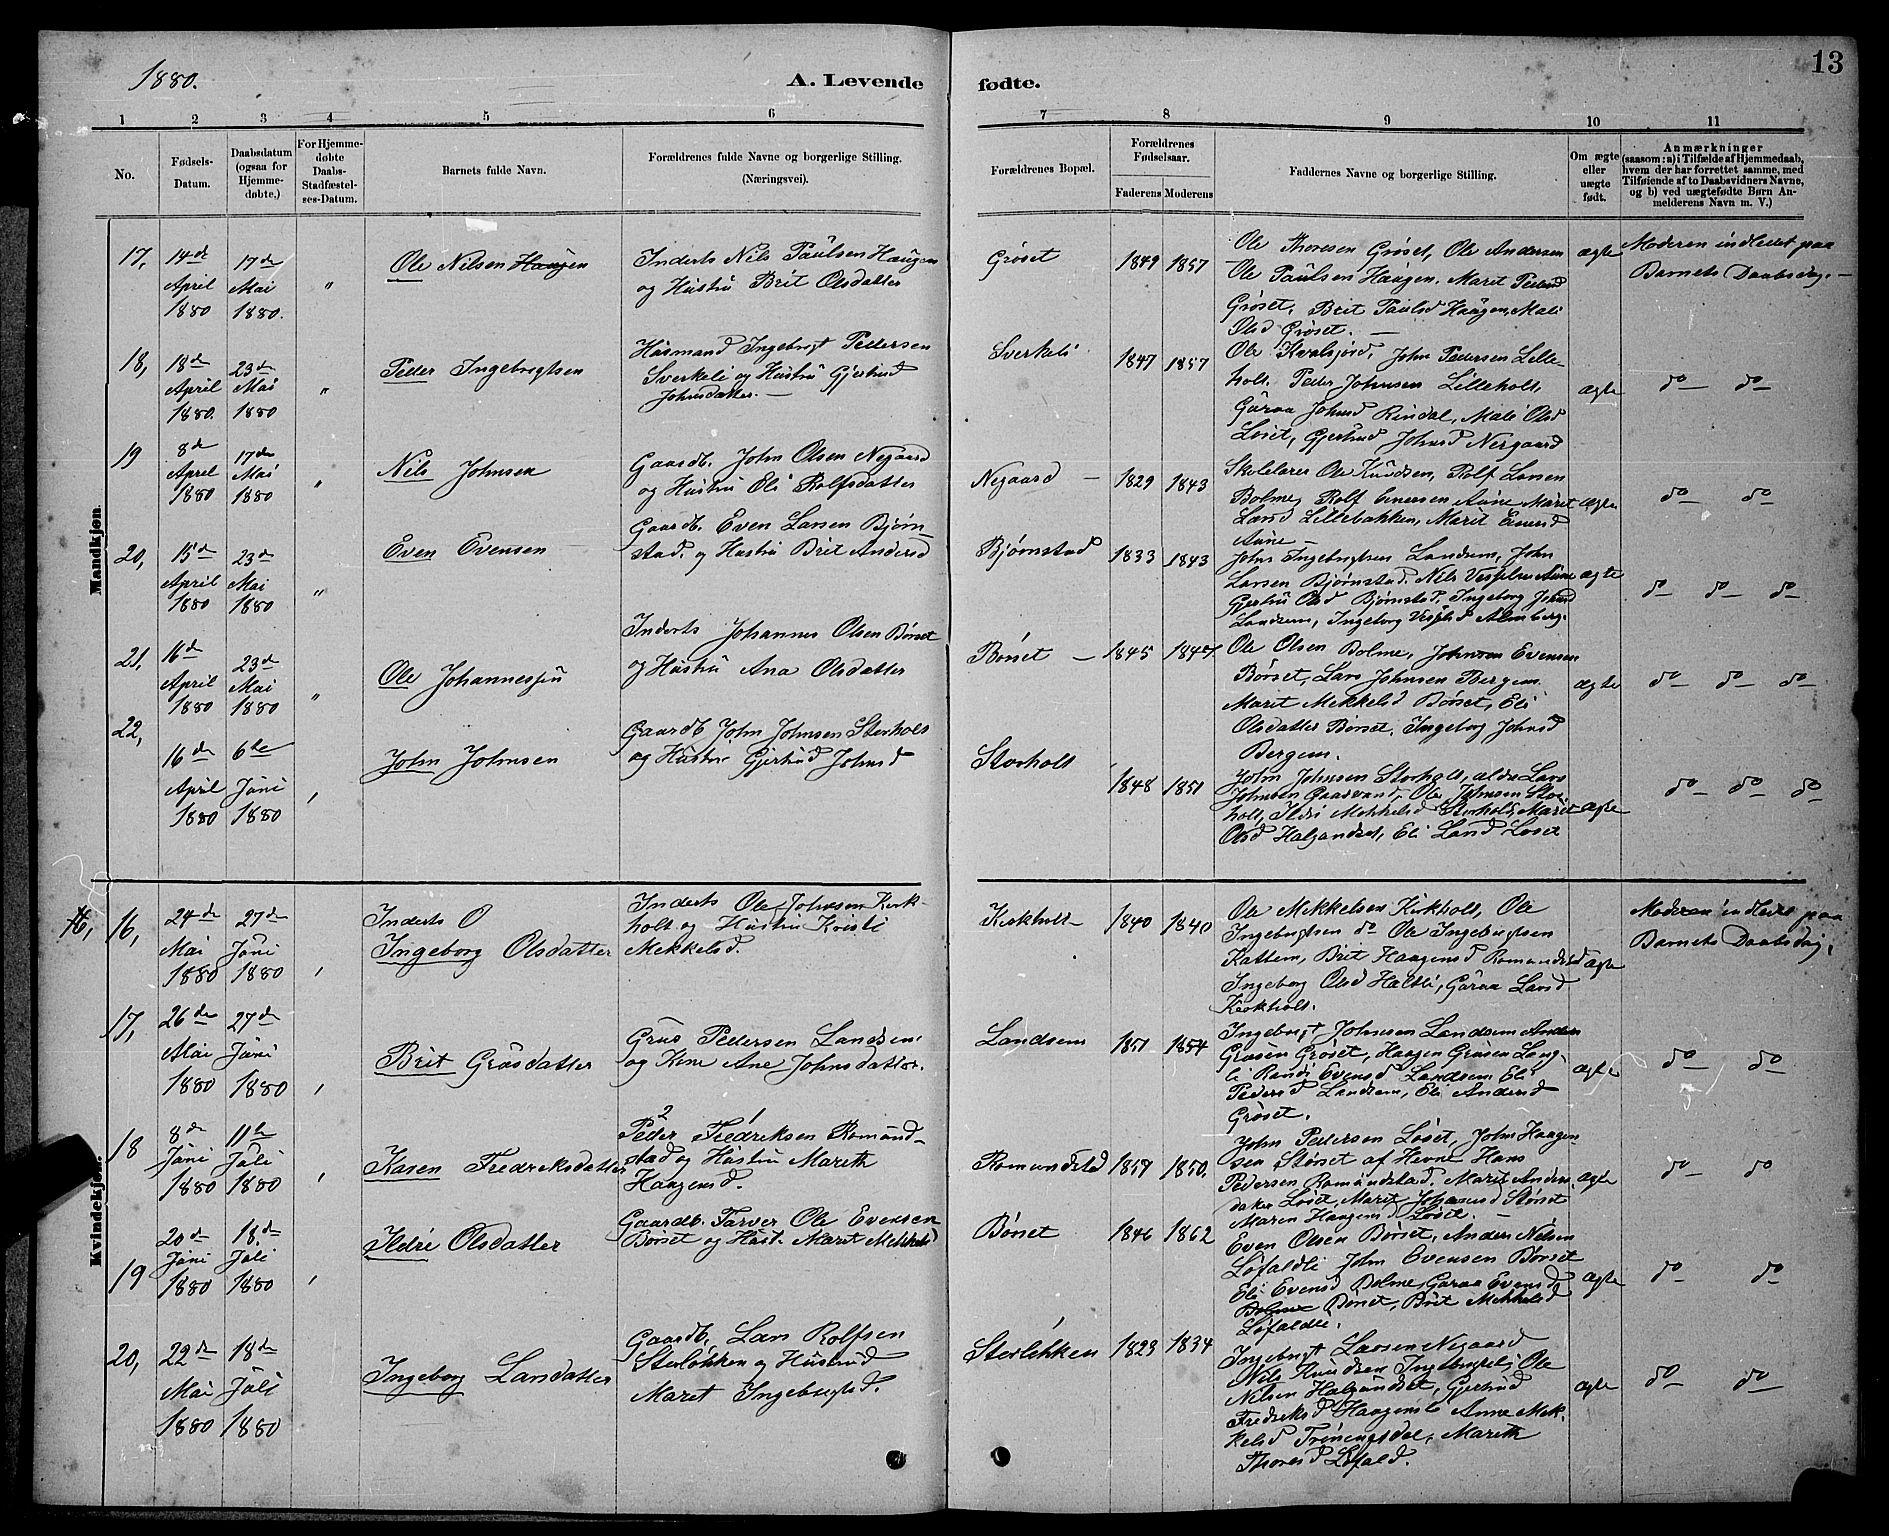 13
1880.
A. Levende fødte.
1 2 3 4 5 6 7 8 9 10 11
No.
Fødsels-
Datum.
Daabsdatum
(ogsaa for
Hjemme-
døbte.)
For Hjemme-
døbte
Daabs-
Stadfæstel-
ses-Datum.
Barnets fulde Navn.
Forældrenes fulde Navne og borgerlige Stilling.
(Næringsvei).
Forældrenes Bopæl.
Forældrenes
Fødselsaar.
Faderens Moderens
Faddernes Navne og borgerlige Stilling.
Om ægte
eller
uægte
født.
Anmærkninger
(saasom: a) i Tilfælde af Hjemmedaab,
hvem der har forrettet samme, med
Tilføiende af to Daabsvidners Navne,
og b) ved uægtefødte Børn An-
melderens Navn m. V.)
Mandkjøn.
17,
14de
April
1880
17de
Mai
1880.
"
Ole Nilsen Haugen
Inderts Nils Paulsen Haugen
og Hustru Brit Olsdatter
Grøset
1849 1857
Ole Thoresen Grøset, Ole Andersen
Ole Paulsen Haugen, Marit Pedersd
Grøset, Brit Paulsd Haugen, Mali
Olsd Grøset. —
ægte
Moderen indledet paa
Barnets Daabsdag. —
18,
18de
April
1880.
23de
Mai
1880
"
Peder Ingebrigtsen
Husmand Ingebrigt Pedersen
Sverkeli og Hustru Gjertrud
Johnsdatter. —
Sverkeli
1847 1857
Ole Kvalsjord, John Pedersen Lille-
holt, Peder Johnsen Lilleholt,
Guroa Johnsd Rindal, Mali Olsd
Løset, Gjertrud Johnsd Nergaard
ægte
do — do —
19
8de
April
1880
17de
Mai
1880
"
Nils Johnsen
Gaardb. John Olsen Negaard
og Hustru Eli Rolfsdatter
Negaard —
1829 1843
Skolelærer Ole Knudsen, Rolf Larsen
Bolme, Rolf Einersen Aune Marit
Larsd Lillebakken, Marit Einersd
Aune —
ægte
do — do —
20,
15de
April
1880
23de
Mai
1880
"
Even Evensen
Gaardb. Even Larsen Bjørn-
stad, og Hustru Brit Andersd
Bjørnstad
1833 1843
John Ingebrigtsen Landsem, John
Larsen Bjørnstad, Nils Aune
Gjertru Olsd Bjørnstad, Ingeborg Johnsd
Landsem, Ingeborg Almberg.
ægte
do — do — do —
21,
16de
April
1880
23de
Mai
1880
"
Ole Johannessen
Inderts Johannes Olsen Børset
og Hustru Ana Olsdatter
Børset —
1845 1847
Ole Olsen Bolme, Johnsen Evensen
Børset, Lars Johnsen Bergem
Marit Mekkelsd Børset, Eli
Olsdatter Børset, Ingeborg Johnsd
Bergem.
ægte
do — do — do —
22,
16de
April
1880
6te
Juni
1880
John Johnsen
Gaardb John Johnsen Storholt
og Hustru Gjertrud Johnsd
Storholt
1848 1851
John Johnsen Storholt, aldre Lars
Johnsen Gaasvand, Ole Johnsen Stor-
holt, Ildri Mekkelsd Storholt, Marit
Olsd Halgundset, Eli Larsd Løset
ægte
do — do — do —
Kvindekjøn.
16, 16,
24de
Mai
1880
27de
Juni
1880
Inderts O
Ingeborg Olsdatter
Inderts Ole Johnsen Kirk-
holt og Hustru Kristi
Mekkelsd.
Kirkholt
1840 1840
Ole Mekkelsen Kirkholt, Ole
Ingebrigtsen do Ole Ingebrigtsen
Kattem, Brit Haagensd Romundstad
Ingeborg Olsd Haltli, Guroa Larsd
Kirkholt.
ægte
Moderen indledet paa
Barnets Daabsdag.
17,
26de
Mai
1880
27de
Juni
1880
Brit Grusdatter
Grus Pedersen Landsem
og Kone Ane Johnsdatter.
Landsem
1851 1854
Ingebrigt Johnsen Landsem Anders
Grusen Grøset, Haagen Grusen Lang-
li Randi Evensd Landsem, Eli
Pedersd Landsem, Eli Andersd
Grøset.
ægte
do — do —
18
8de
Juni
1880
11te
Juli
1880
Karen Fredriksdatter
2 1
Peder Fredriksen Romund-
stad og Hustru Mareth
Haagensd.
Romundstad
1857 1850.
John Pedersen Løset, John Haagen
sen Størset af Hevne Hans
Pedersen Romundstad. Marit Anders-
datter Løset, Marit Johansd Størset
Maren Haagensd Løset. —
ægte
do — do —
19
20de
Juni
1880
18de
Juli
1880
Ildri Olsdatter
Gaardb. Farver Ole Evensen
Børset og Hust. Marit Mekkelsd
Børset
1846 1862
Even Olsen Børset, Anders Nilsen
Løfaldli John Evensen Børset
Eli Evensd Bolme, Guroa Evensd
Bolme Børset, Brit Mekkelsd
Løfaldli.
ægte
do — do —
20,
22de
Mai
1880
18de
Juli
1880
Ingeborg Larsdatter
Gaardb, Lars Rolfsen
Storløkken og Hustru
Maret Ingebrigtsd.
Storløkken
1823 1834
Ingebrigt Larsen Negaard
Nils Knudsen Ole
Nilsen Halgundset, Gjertrud
Fredriksd Haagensli Anne Mek-
kelsd Trøningsdal, Mareth
Thoresd Løfald.
ægte
do — do —